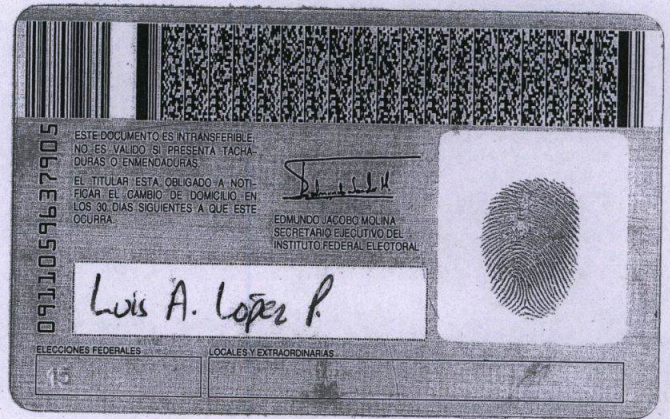 ESTE DOCUMENTO ES INTRANSFERIBLE
NO ES VALIDO SI PRESENTA TACHA-
DURAS O ENMENDADURAS.
EL TITULAR ESTA OBLIGADO A NOTI-
FICAR EL CAMBIO DE DOMICILIO EN
LOS 30 DIAS SIGUIENTES A QUE ESTE
OCURRA.
0911059637905
EDMUNDO JACOBO MOLINA
SECRETARIO EJECUTIVO DEL
INSTITUTO FEDERAL ELECTORAL
Luis A. López P.
ELECCIONES FEDERALES
LOCALES Y EXTRAORDINARIAS
15